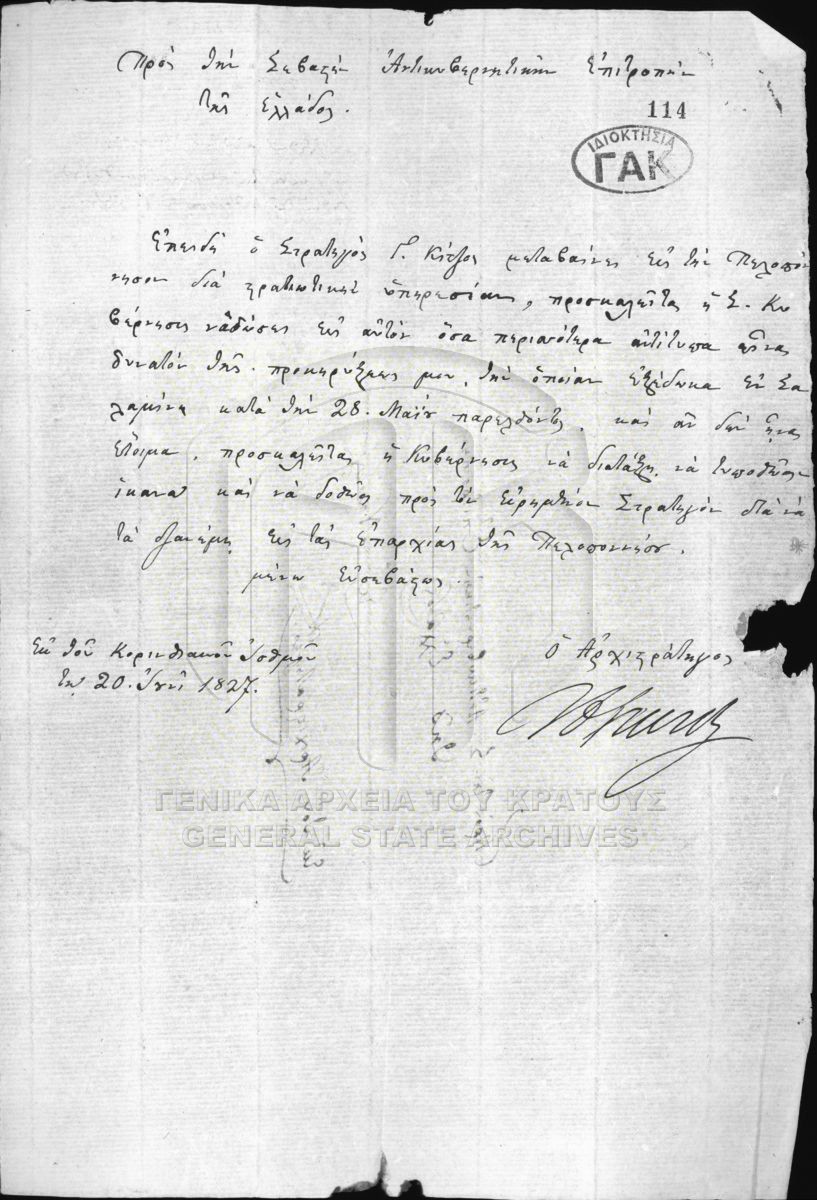 Πρὸς τὴν Σεβαστὴν Ἀντικυβερνητικὴν Ἐπιτροπὴν
τῆς Ἑλλάδος.
114
ΙΔΙΟΚΤΗΣΙΑ
ΓΑΚ
Ἐπειδὴ ὁ Στρατηγὸς Γ. Κίτζος μεταβαίνει εἰς τὴν Πελοπόν
νησον διὰ στρατιωτικὴν ὑπηρεσίαν, προσκαλεῖται ἡ Σ. Κυ
βέρνησις νὰ δώσει εἰς αὐτὸν ὅσα περισσότερα ἀντίτυπα εἶναι
δυνατὸν τῆς προκηρύξεώς μου, τὴν ὁποίαν ἐξέδωκα ἐν Σα
λαμίνι κατὰ τὴν 28. Μαΐου παρελθόντος. καὶ ἂν δὲν ἦναι
ἕτοιμα, προσκαλεῖται ἡ Κυβέρνησις νὰ διατάξῃ νὰ τυπωθῶσιν
ἱκανὰ καὶ νὰ δοθῶσι πρὸς τὸν εἰρημένον Στρατηγὸν διὰ νὰ
τὰ διανέμῃ εἰς τὰς ἐπαρχίας τῆς Πελοποννήσου.
μένω εὐσεβάστως.
Ἐκ τοῦ Κορινθιακοῦ Ἰσθμοῦ
τῇ 20. Ἰουνί 1827.
Ὁ Ἀρχιστράτηγος
ΓΕΝΙΚΑ ΑΡΧΕΙΑ ΤΟΥ ΚΡΑΤΟΥΣ
GENERAL STATE ARCHIVES